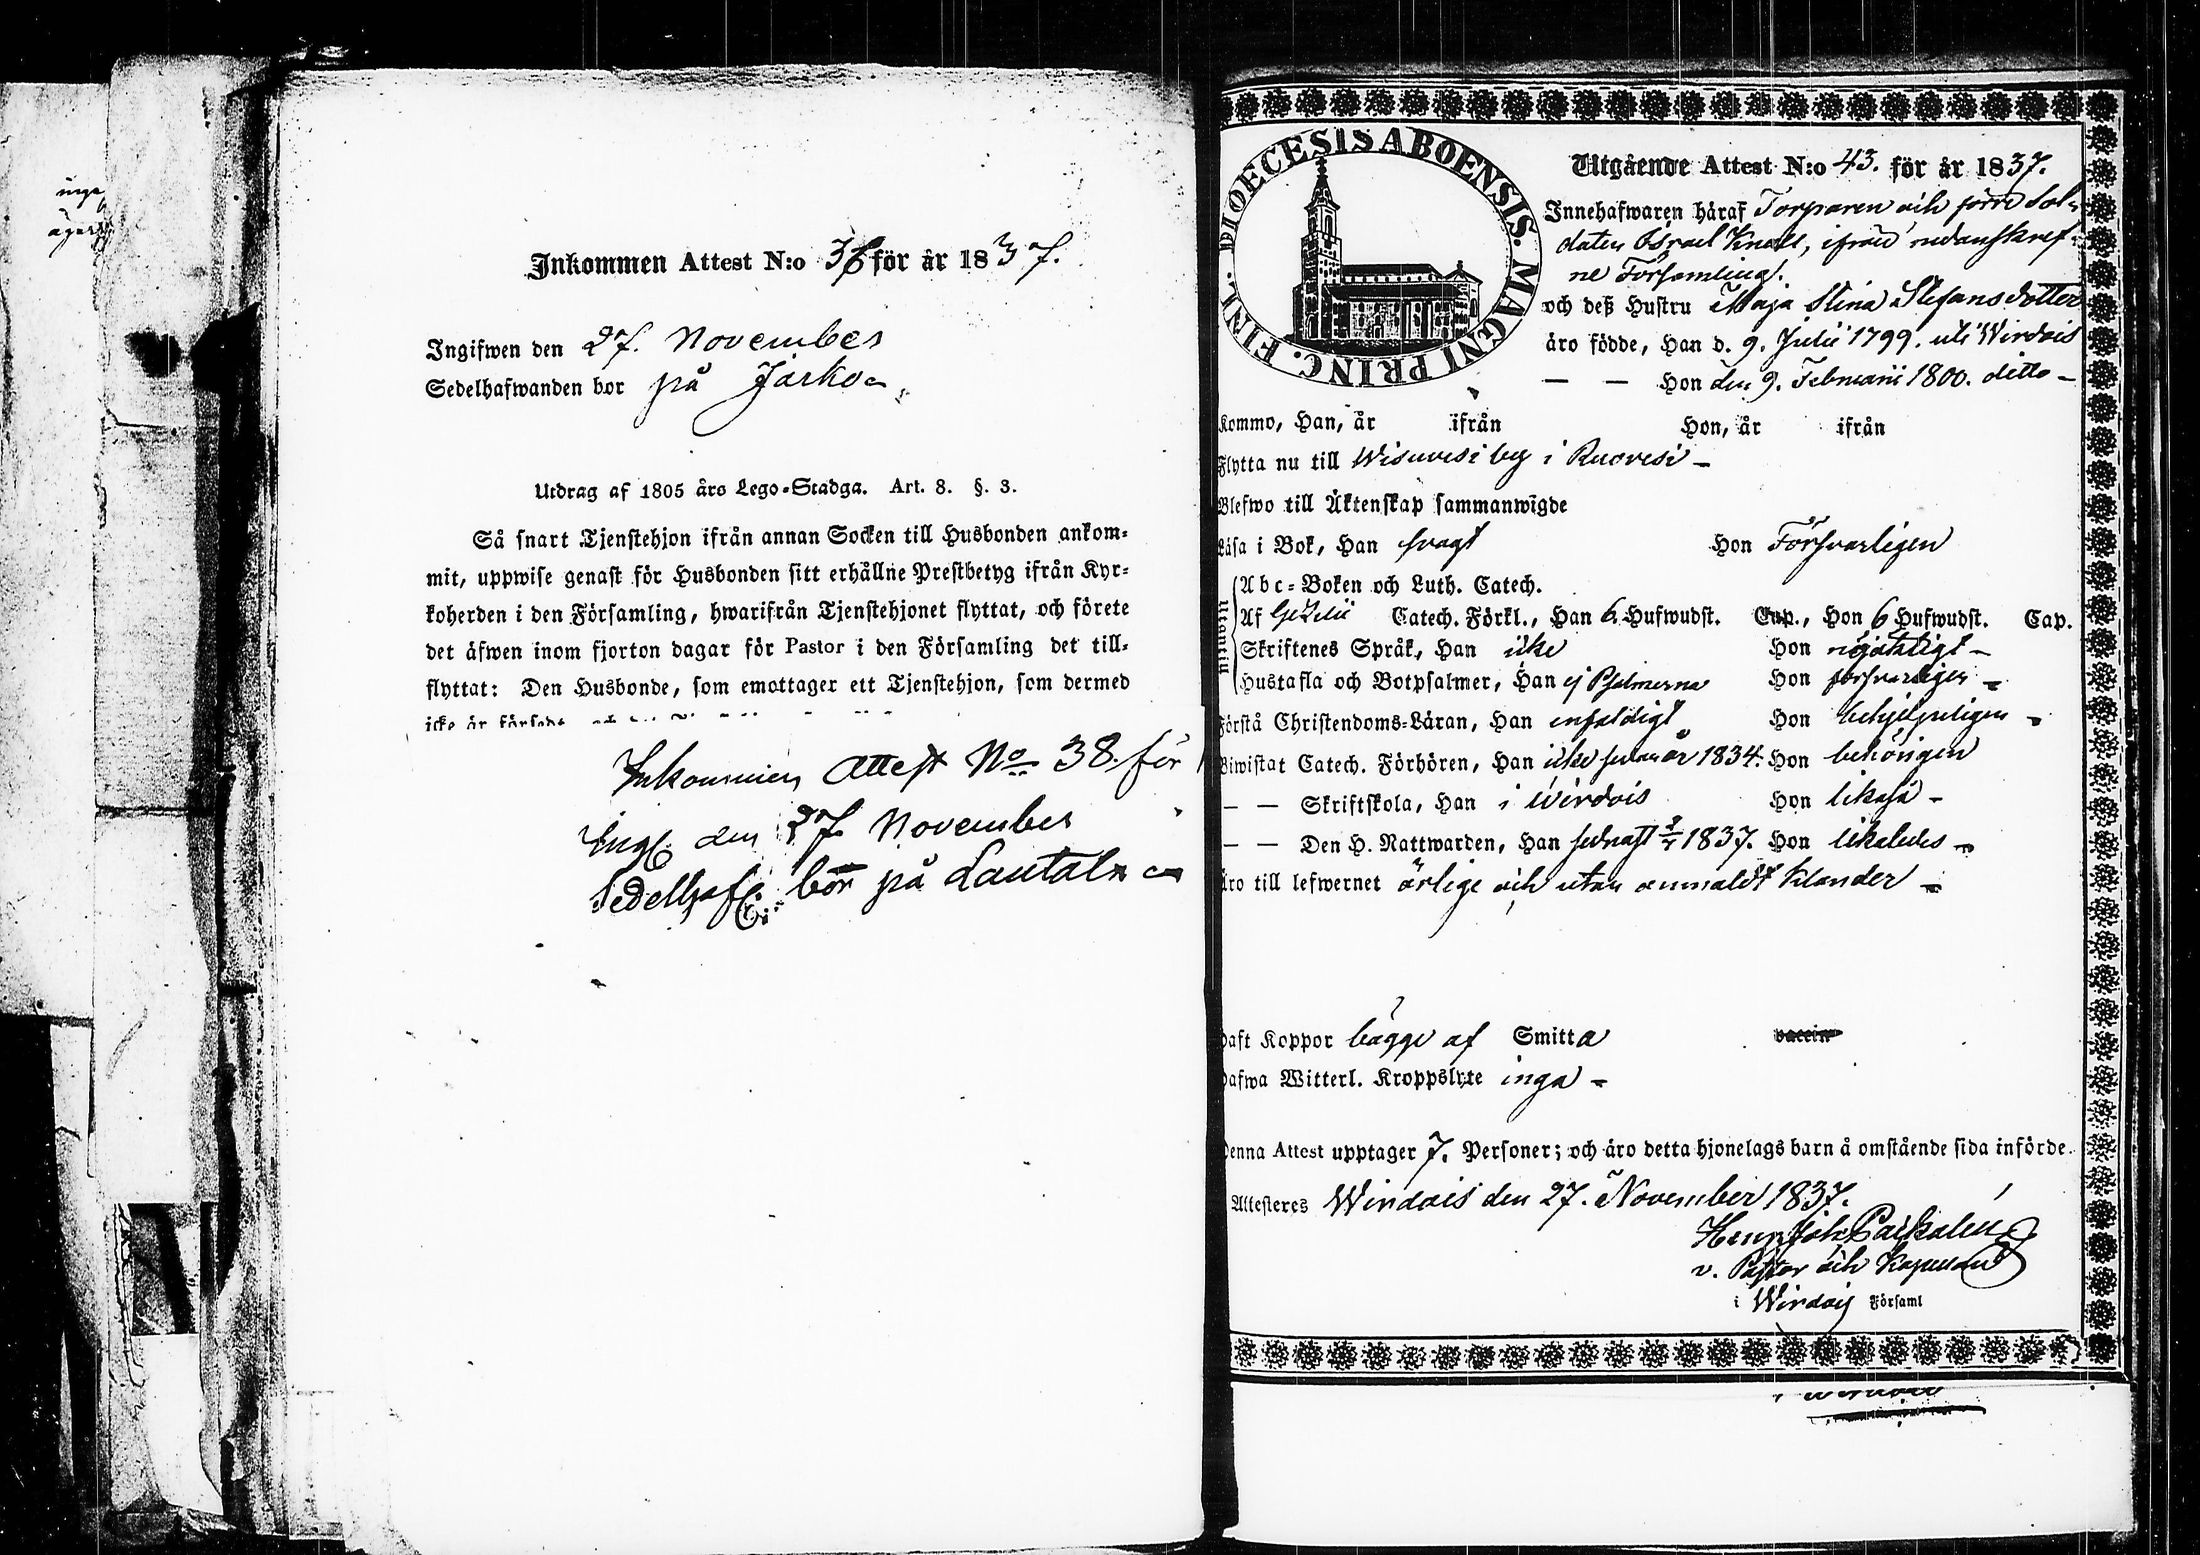 inga
äger
Inkommen Attest N:o 36 för år 1837.
Ingifwen den 27. November
Sedelhafwanden bor på Jäsko
Utdrag af 1805 års Lego-Stadga. Art. 8. §. 3.
Så snart Tjenstehjon ifrån annan Socken till Husbonden ankom-
mit, uppwise genast för Husbonden sitt erhållne Prestbetyg ifrån Kyr-
koherden i den Församling, hwarifrån Tjenstehjonet flyttat, och förete
det äfwen inom fjorton dagar för Pastor i den Församling det till-
flyttat: Den Husbonde, som emottager ett Tjenstehjon, som dermed
icke är försedt
Inkommen Attest No 38. för
Ingf. den 27. November
Sedelhaf. bor på Lautala
DIOECESIS ABOENSIS. MAGNI PRINC. FINL.
Utgående Attest N:o 43. för år 1837.
Innehafwaren häraf Torparen och förre Sol-
daten Israel Knall, ifrån nedanskref-
ne Församling.
och deß Hustru Maja Stina Stefansdotter
äro födde, Han d. 9. Julii 1799. uti Wirdois
— — Hon den 9. Februarii 1800. ditto –
Kommo, Han, år ifrån Hon, år ifrån
Flytta nu till Wisuvesi by i Ruovesi –
Blefwo till Äktenskap sammanwigde
Läsa i Bok, Han svagt Hon Försvarligen
Abc-Boken och Luth. Catech.
Utantill Af Gezelii Catech. Förkl., Han 6 Hufwudst. Cap., Hon 6 Hufwudst. Cap.
Skriftenes Språk, Han icke Hon nöjaktigt –
Hustafla och Botpsalmer, Han ej Psalmerna Hon försvarligen –
Förstå Christendoms-Läran, Han enfaldigt Hon behjelpeligen –
Biwistat Catech. Förhören, Han icke sedan år 1834. Hon behörigen
— — Skriftskola, Han i Wirdois Hon likaså –
— — Den H. Nattwarden, Han sednast 1837. Hon likaledes –
äro till lefwernet ärlige och utan anmäldt klander –
Haft Koppor bägge af Smitta vaccin
Hafwa Witterl. Kroppslyte inga –
Denna Attest upptager 7. Personer; och äro detta hjonelags barn å omstående sida införde.
Attesteres Wirdois den 27. November 1837.
Henr Joh Paikalén
v. Pastor och Kapellan
i Wirdois Församl